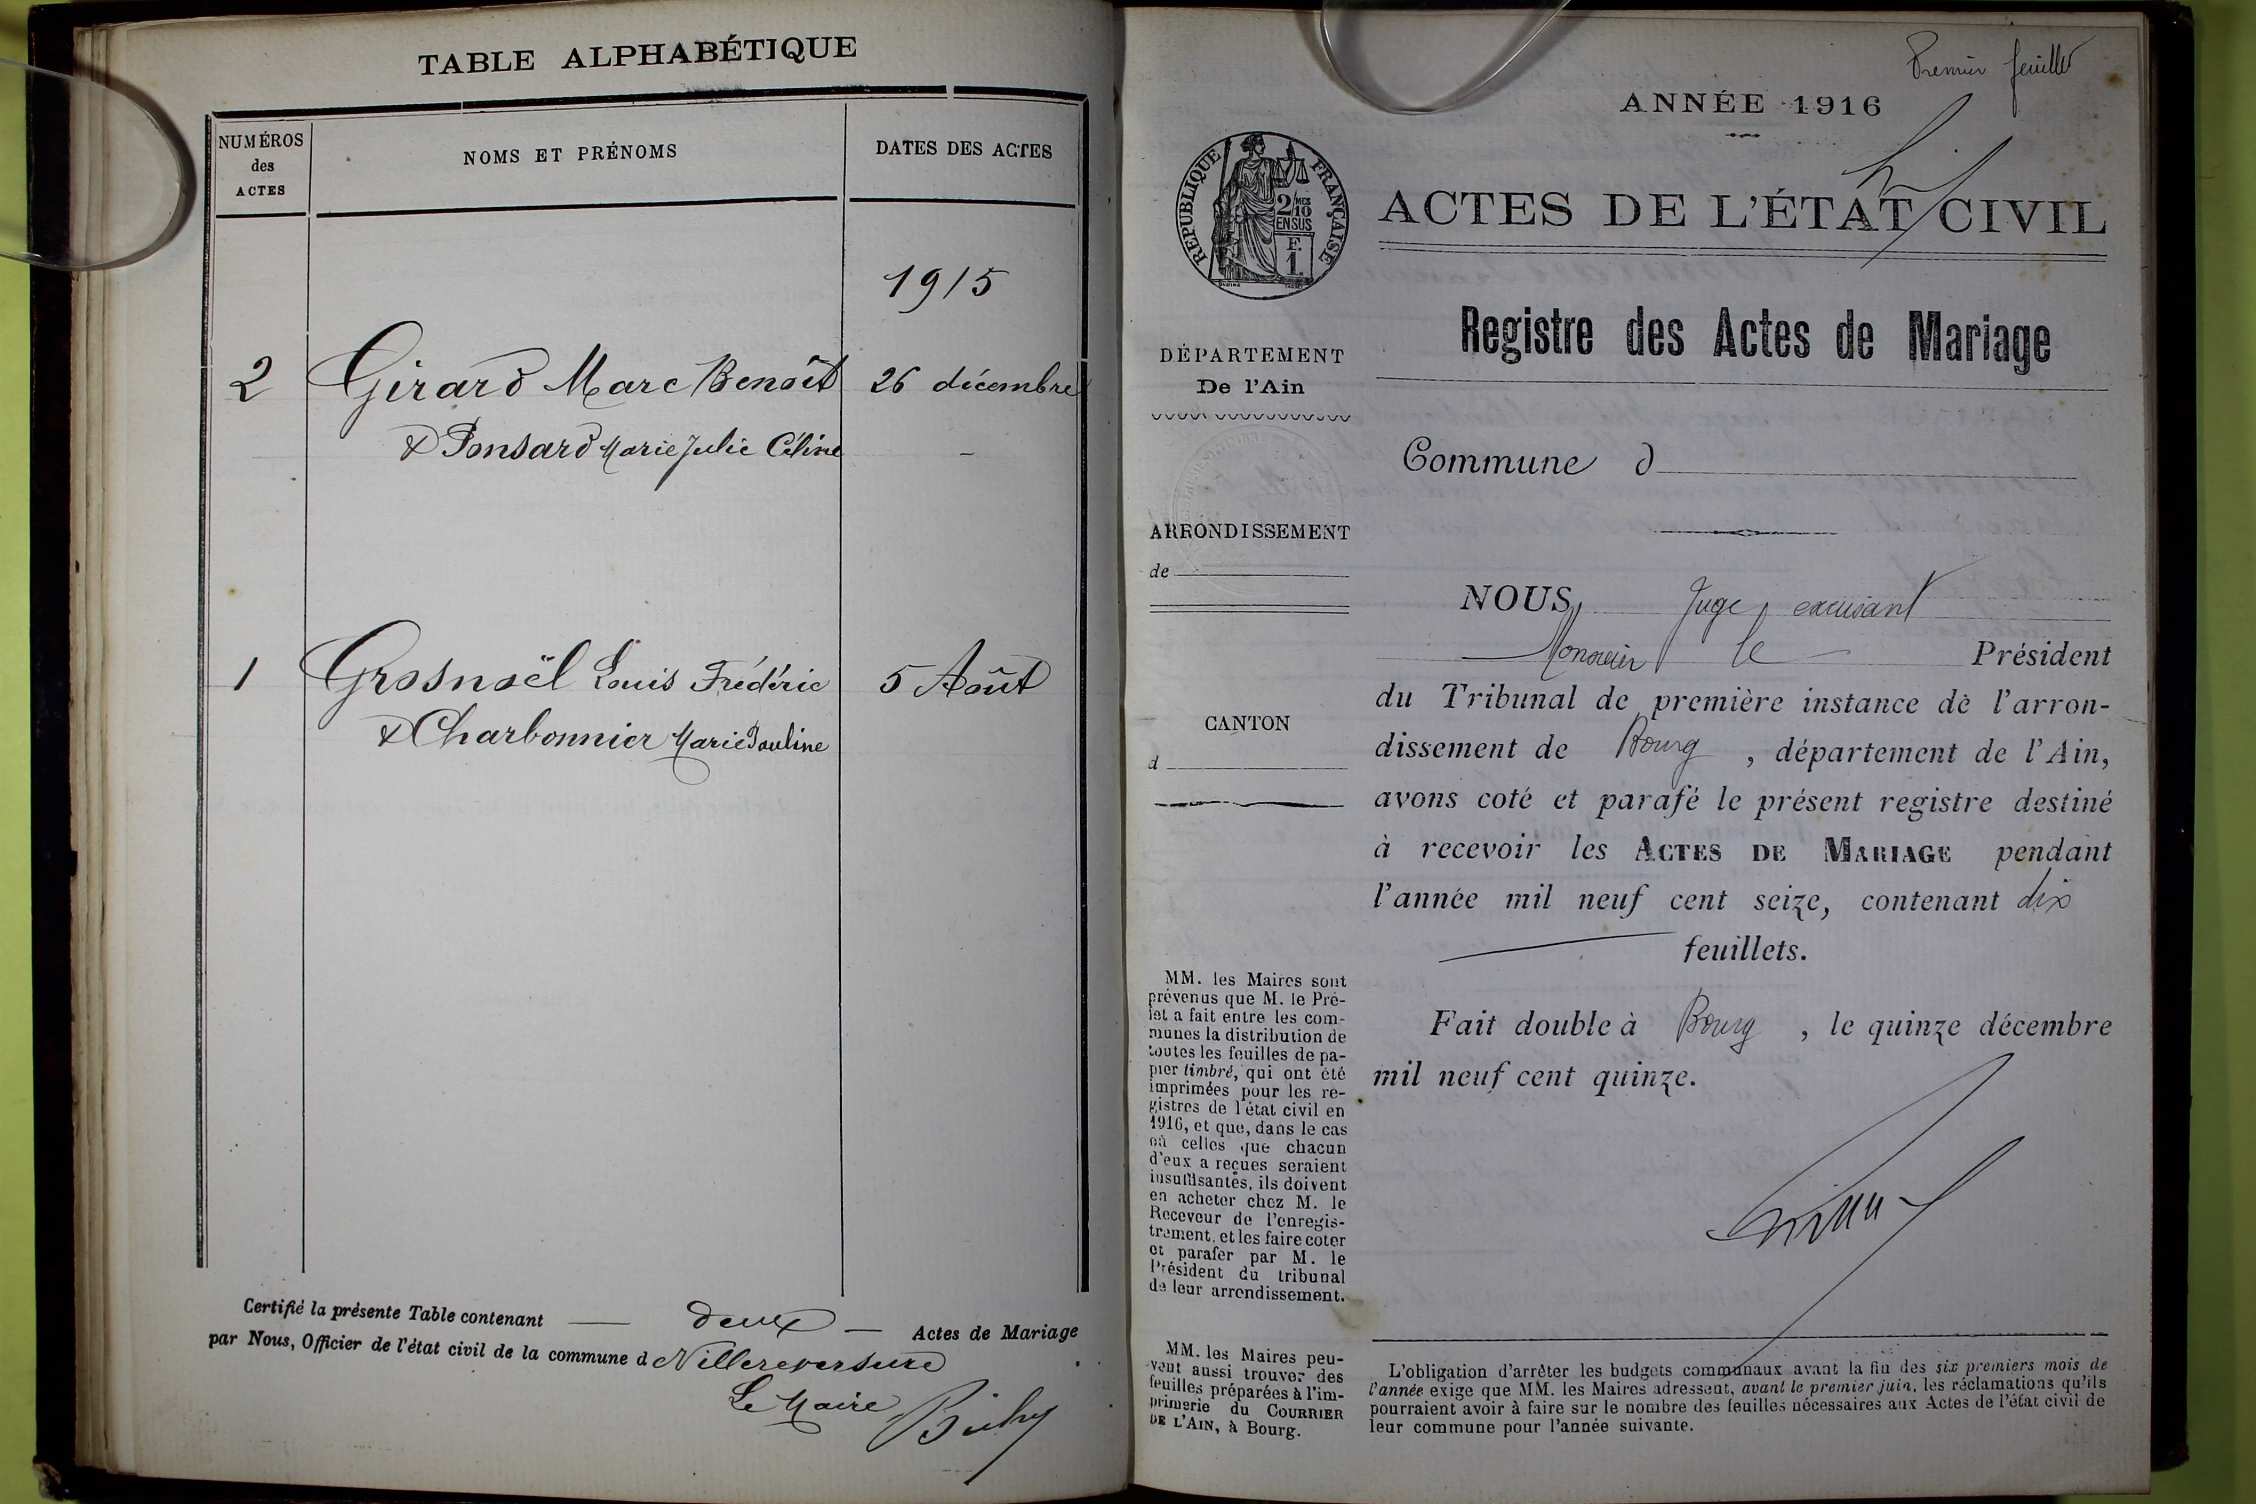 TABLE ALPHABÉTIQUE
NUMÉROS
des
ACTES
NOMS ET PRÉNOMS
DATES DES ACTES
1915
2 Girard Marc Benoît 26 décembre
& Ponsard Marie Julie Céline -
1 Grosnoël Louis Frédéric 5 Août
& Charbonnier Marie Pauline
Certifié la présente Table contenant — deux — Actes de Mariage
par Nous, Officier de l'état civil de la commune d Villereversure
Le Maire
Premier feuillet
ANNÉE 1916
RÉPUBLIQUE FRANÇAISE
2/10
EN SUS
F.
1.
ACTES DE L'ÉTAT CIVIL
Registre des Actes de Mariage
DÉPARTEMENT
De l'Ain
ARRONDISSEMENT
de
CANTON
d
MM. les Maires sont
prévenus que M. le Pré-
fet a fait entre les com-
munes la distribution de
toutes les feuilles de pa-
pier timbré, qui ont été
imprimées pour les re-
gistres de l'état civil en
1916, et que, dans le cas
où celles que chacun
d'eux a reçues seraient
insuffisantes, ils doivent
en acheter chez M. le
Receveur de l'enregis-
trement, et les faire coter
et parafer par M. le
Président du tribunal
de leur arrondissement.
MM. les Maires peu-
vent aussi trouver des
feuilles préparées à l'im-
primerie du COURRIER
DE L'AIN, à Bourg.
Commune d
NOUS, Juge, excusant
Monsieur le Président
du Tribunal de première instance de l'arron-
dissement de Bourg, département de l'Ain,
avons coté et parafé le présent registre destiné
à recevoir les ACTES DE MARIAGE pendant
l'année mil neuf cent seize, contenant dix
feuillets.
Fait double à Bourg, le quinze décembre
mil neuf cent quinze.
L'obligation d'arrêter les budgets communaux avant la fin des six premiers mois de
l'année exige que MM. les Maires adressent, avant le premier juin, les réclamations qu'ils
pourraient avoir à faire sur le nombre des feuilles nécessaires aux Actes de l'état civil de
leur commune pour l'année suivante.